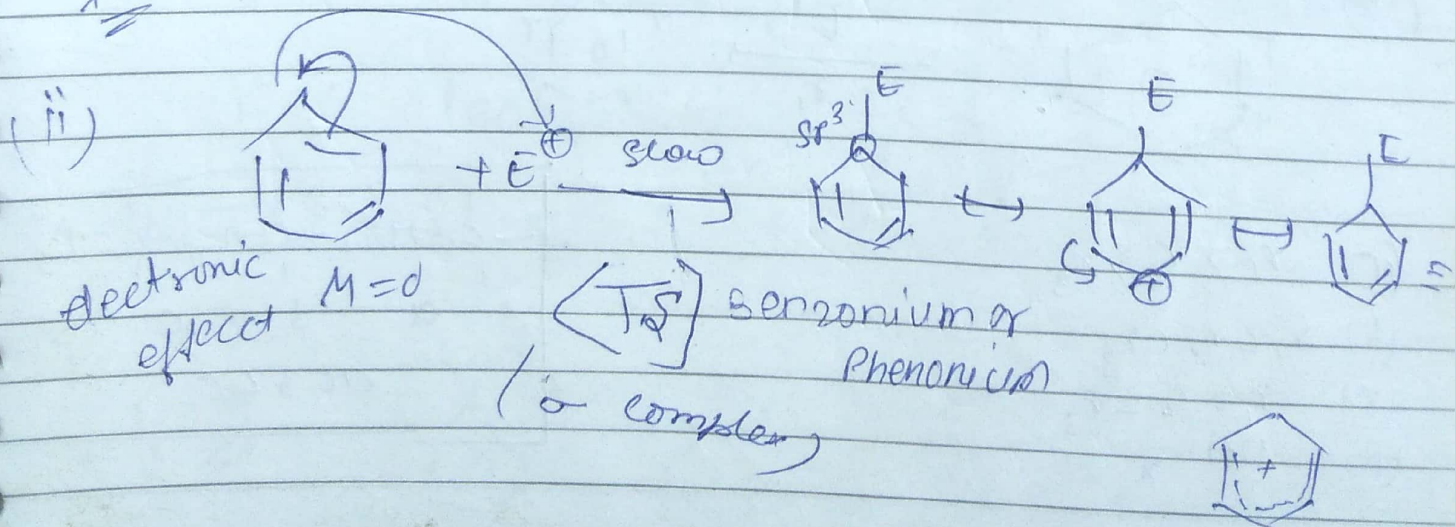 (ii)
+ E⊕ slow
sp³ E
E
⊕
E
electronic effect M=d
[TS] Benzonium or Phenonium
(σ complex)
+